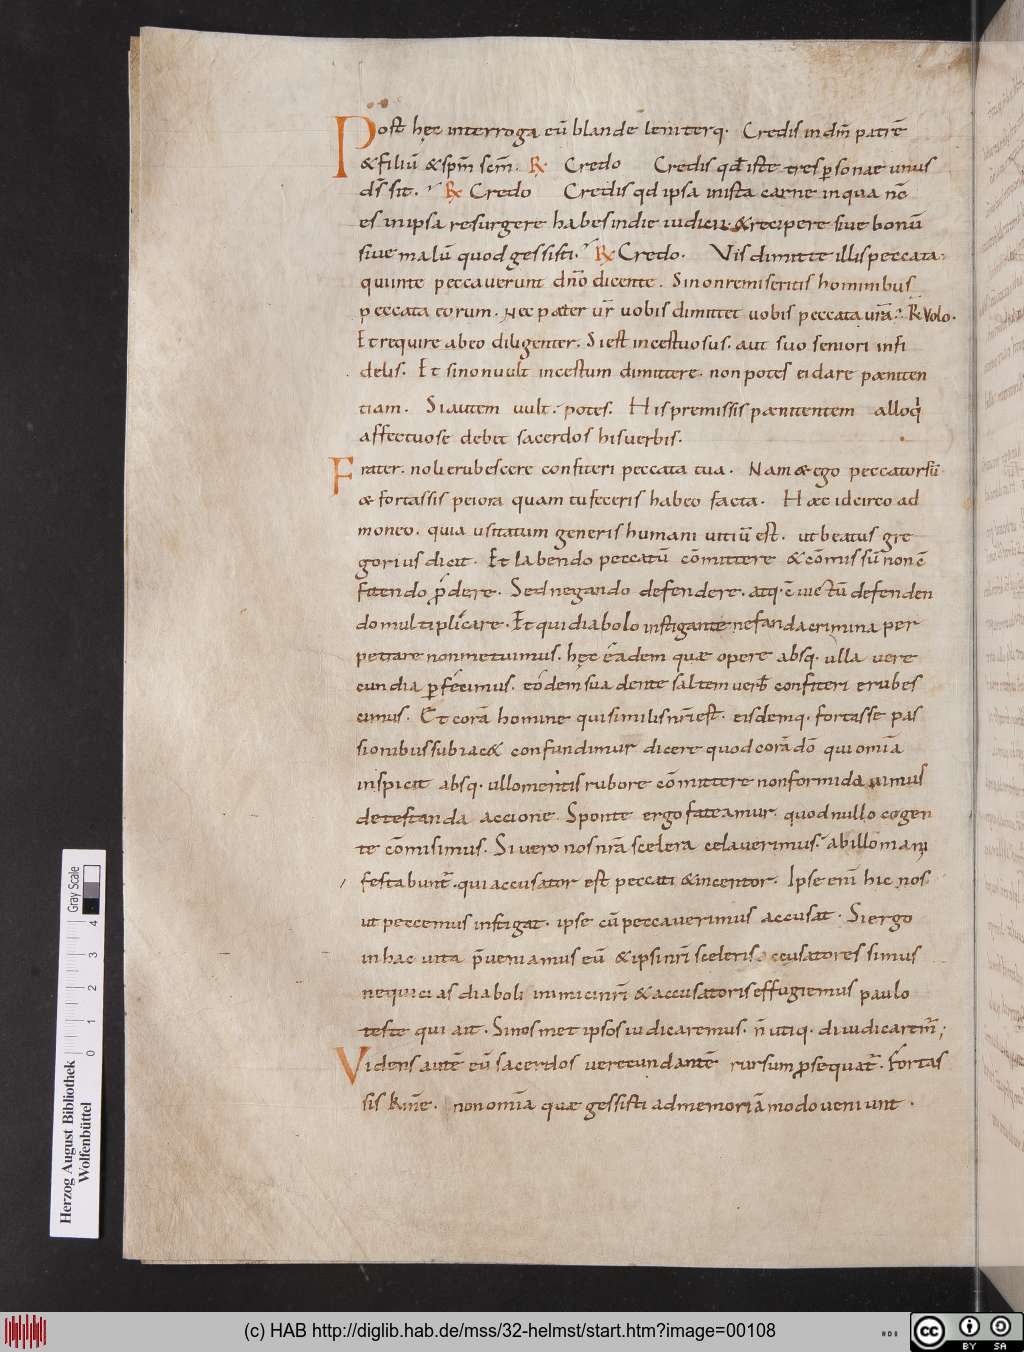 Post hęc interroga eū blande leniterq. Credis in dm̄ patrē
& filiū & spm̄ scm̄. R. Credo Credis qd iste tres psonae unus
ds̄ sit. R Credo Credis qd ipsa in ista carne in qua nc̄
es in ipsa resurgere habes in die iudicii & recipere siue bonū
siue malū quod gessisti. R Credo. Vis dimittere illis peccata.
qui in te peccauerunt dn̄o dicente. Si non remiseritis hominibus
peccata eorum. Nec pater ur̄ uobis dimittet uobis peccata urā. R Volo.
Et require ab eo diligenter. Si est incestuosus. aut suo seniori infi
delis. Et si non uult incestum dimittere. non potes ei dare pæniten
tiam. Si autem uult. potes. His premissis pænitentem alloqi
affectuose debet sacerdos his uerbis.
Frater. noli erubescere confiteri peccata tua. Nam & ego peccator sū
& fortassis peiora quam tu feceris habeo facta. Hæc idcirco ad
moneo. quia usitatum generis humani uitiū est. ut beatus gre
gorius dicit. Et labendo peccatū cōmittere & cōmissū non cō
fitendo pdere. Sed negando defendere. atq. cuictū defenden
do multiplicare. Et qui diabolo instigante nefanda crimina per
petrare non metuimus. hęc eadem quæ opere absq. ulla uere
cundia pfecimus. eodem suadente saltem uerb confiteri erubes
cimus. Et corā homine qui similis nri est. eisdemq. fortasse pas
sionibus subiac& confundimur dicere quod corā dō qui omia
inspicit absq. ullo mentis rubore cōmittere non formidauimus
detestanda accione. Sponte ergo fateamur. quod nullo cogen
te cōmisimus. Si uero nos nrā scelera celauerimus. ab illo mani
festabunt. qui accusator est peccati & incentor. Ipse eni hic nos
ut peccemus instigat. ipse cū peccauerimus accusat. Si ergo
in hac uita pueniamus eū & ipsi nri sceleris accusatores simus
nequicias diaboli inimici nri & accusatoris effugiemus paulo
teste qui ait. Si nosmet ipsos iudicaremus. n utiq. diiudicarem;
Videns autē eū sacerdos uerecundantē rursum psequat. Fortas
sis kme. non omia quæ gessisti ad memoriā modo ueniunt.
Herzog August Bibliothek
Wolfenbüttel
0 1 2 3 4
Gray Scale
(c) HAB http://diglib.hab.de/mss/32-helmst/start.htm?image=00108
cc BY SA